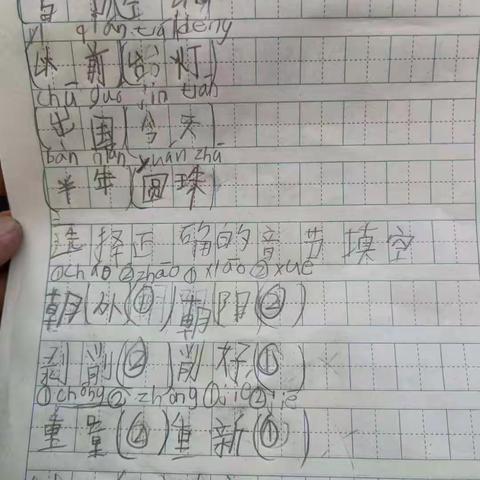 yǐ qián tái dēng
以前 台灯
chū guó jīn tiān
出国 今天
bàn nián yuán zhū
半年 圆珠
选择正确的音节填空
①cháo ②zhāo ①xiāo ②xuē
朝外(①) 朝阳(②)
剥削(②) 削好(①)
①chóng ② zhòng ①
重量(②) 重新(①)